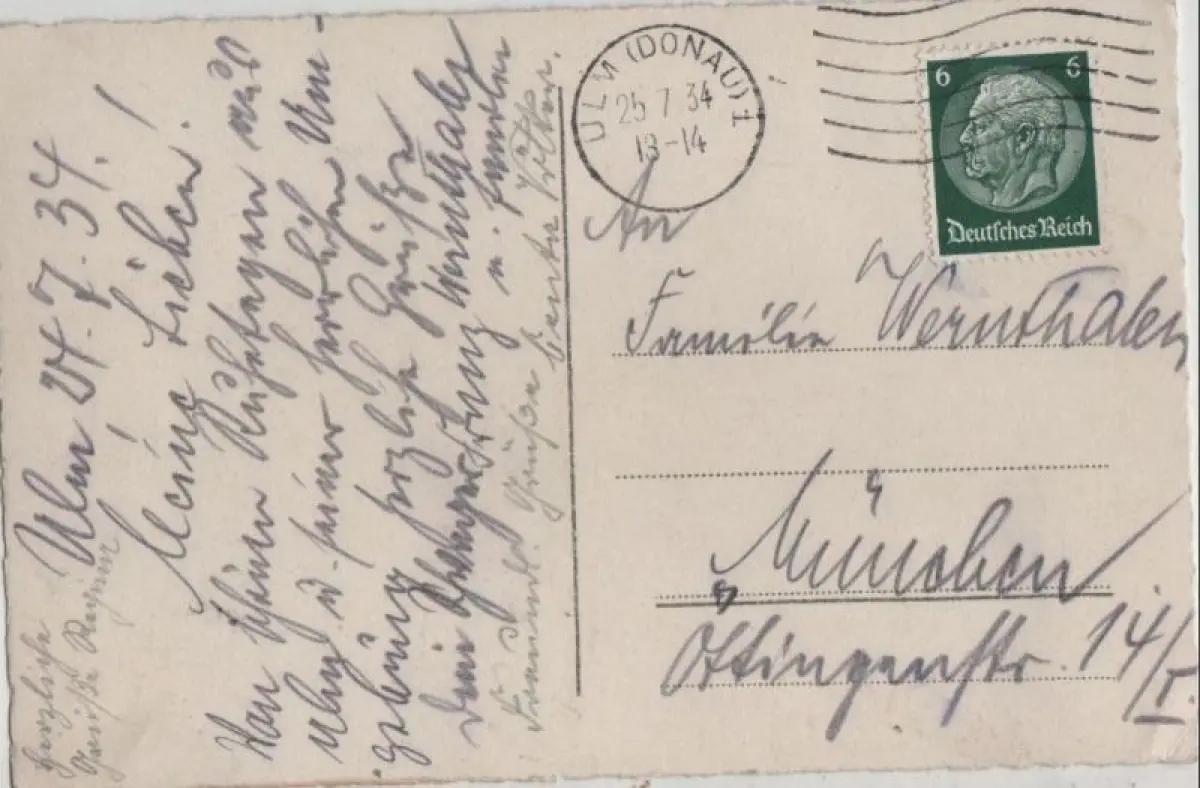 Ulm 24.7.34.
Meine Lieben!
Von schönen Ruhetagen aus
Ulm u. seiner herrlichen Um-
gebung herzliche Grüße
Wernthaler
u. Familie
Freundl. Grüße
Herzliche
Grüße
ULM (DONAU) 1
25.7.34
13-14
6 6
Deutsches Reich
An
Familie Wernthaler
München
Öttingenstr. 14/I.